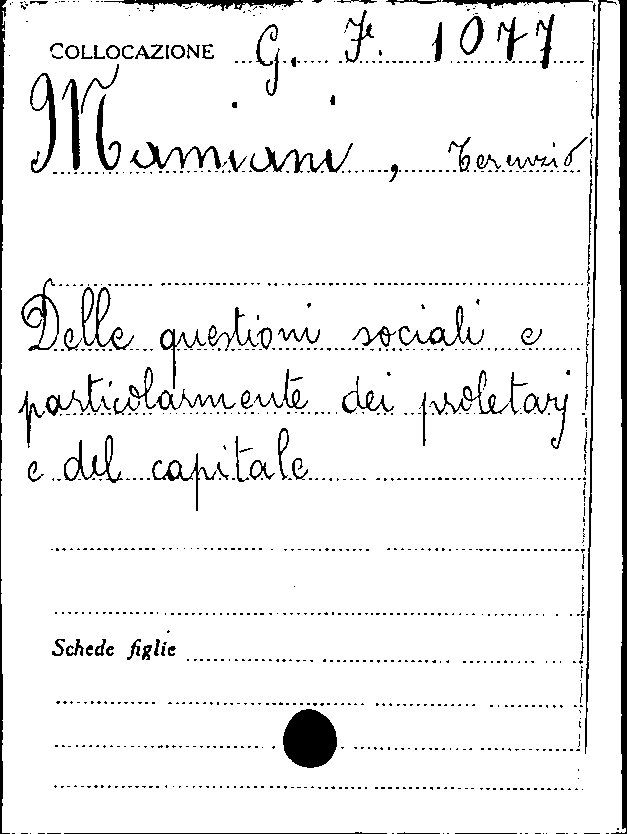 COLLOCAZIONE G. F. 1077
Mamiani, Terenzio
Delle questioni sociali e
particolarmente dei proletarj
e del capitale
Schede figlie